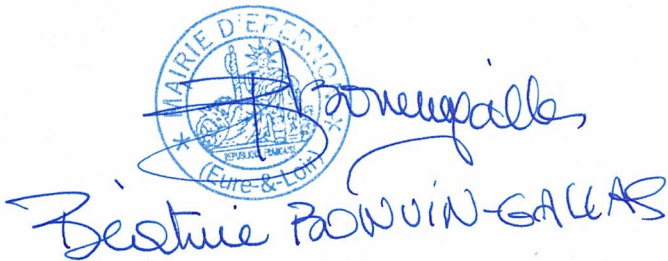 MAIRIE D'EPERNON
RÉPUBLIQUE FRANÇAISE
(Eure-&-Loir)
Béatrice BONVIN-GALLAS